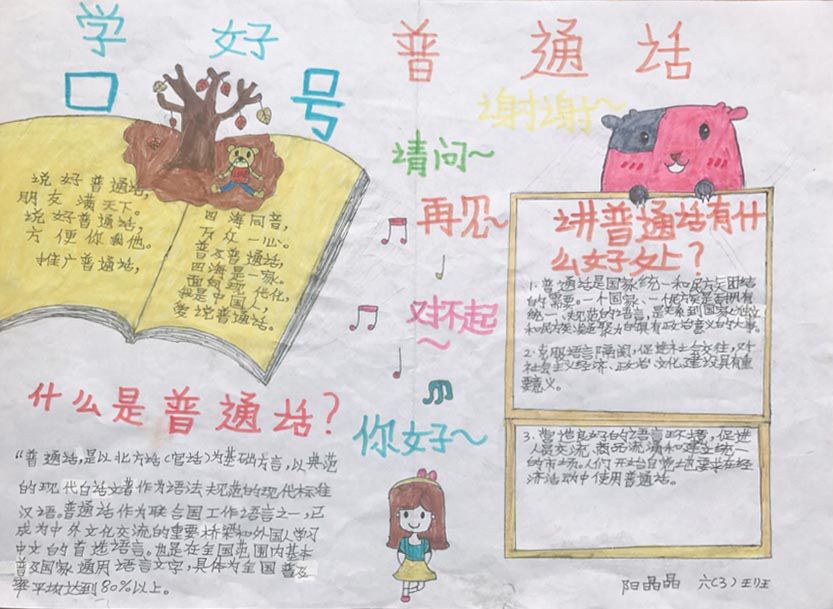 学好普通话
口号
说好普通话,
朋友满天下。
说好普通话,
方便你我他。
推广普通话,
四海同音,
万众一心。
普及普通话,
四海是一家。
面向现代化,
我是中国人,
爱说普通话。
谢谢~
请问~
再见~
对不起~
你好~
什么是普通话?
“普通话,是以北方话(官话)为基础方言,以典范
的现代白话文著作为语法规范的现代标准
汉语。普通话作为联合国工作语言之一,已
成为中外文化交流的重要桥梁和外国人学习
中文的首选语言。也是在全国范围内基本
普及国家通用语言文字,具体为全国普及
率平均达到80%以上。
讲普通话有什
么好处?
1.普通话是国家统一和民族团结
的需要。一个国家、一個民族是否拥有
统一、规范的语言,是关系到国家
和民族凝聚力的具有政治意义的大事。
2.克服语言隔阂,促进社会交往,对
社会主义经济、政治、文化建设具有重
要意义。
3.营造良好的语言环境,促进
人员交流、商品流通和建立统一
的市场。人们开始自觉地要求在经
济活动中使用普通话。
阳晶晶 六(3)班